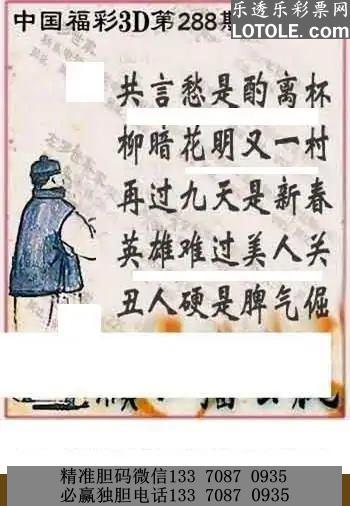 中国福彩3D第288期
乐透乐彩票网
LOTOLE.COM
共言愁是酌离杯
柳暗花明又一村
再过九天是新春
英雄难过美人关
丑人硬是脾气倔
精准胆码微信133 7087 0935
必赢独胆电话133 7087 0935